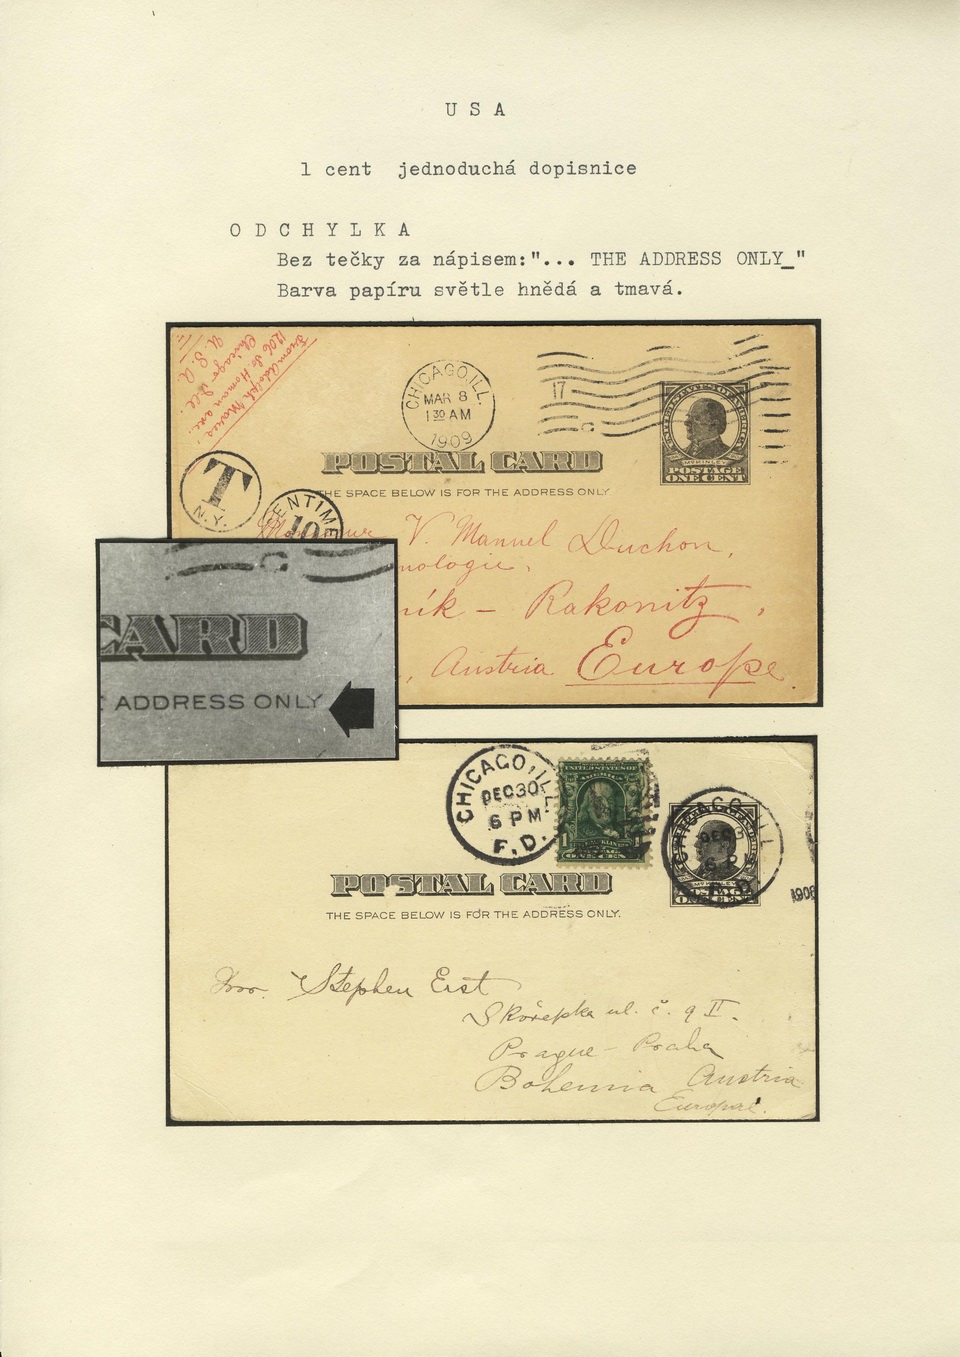 USA
1 cent jednoduchá dopisnice
ODCHYLKA
Bez tečky za nápisem:"... THE ADDRESS ONLY_"
Barva papíru světle hnědá a tmavá.
From Adolph
1206 So. Homan ave.
Chicago Ill.
U. S. A.
CHICAGO, ILL.
MAR 8
1 30 AM
1909
17
UNITED STATES OF AMERICA
McKINLEY
POSTAGE
ONE CENT
POSTAL CARD
THE SPACE BELOW IS FOR THE ADDRESS ONLY
T
N.Y.
CENTIME
10
Monsieur V. Manuel Duchon,
nologie,
ník - Rakonitz,
, Austria Europe
CARD
ADDRESS ONLY
CHICAGO, ILL.
DEC 30
6 PM
F.D.
UNITED STATES OF
1 FRANKLIN 1
ONE CENT
CHICAGO ILL
DEC 3
6 P
McKINLEY
ONE CENT
POSTAL CARD
THE SPACE BELOW IS FOR THE ADDRESS ONLY.
Stephen Erst
Skořepka ul. č. 9 II.
Prague - Praha
Bohemia Austria